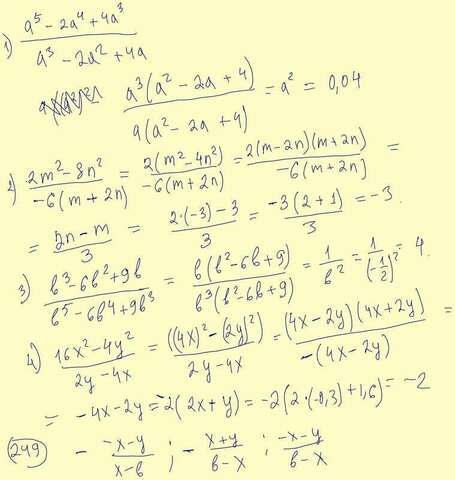 1) (a⁵ - 2a⁴ + 4a³)/(a³ - 2a² + 4a)
(a³(a² - 2a + 4))/(a(a² - 2a + 4)) = a² = 0,04
2) (2m² - 8n²)/(-6(m + 2n)) = (2(m² - 4n²))/(-6(m + 2n)) = (2(m - 2n)(m + 2n))/(-6(m + 2n)) =
= (2n - m)/3 = (2·(-3) - 3)/3 = (-3(2 + 1))/3 = -3.
3) (b³ - 6b² + 9b)/(b⁵ - 6b⁴ + 9b³) = (b(b² - 6b + 9))/(b³(b² - 6b + 9)) = 1/b² = 1/(-1/2)² = 4.
4) (16x² - 4y²)/(2y - 4x) = ((4x)² - (2y)²)/(2y - 4x) = ((4x - 2y)(4x + 2y))/(-(4x - 2y)) =
= -4x - 2y = -2(2x + y) = -2(2·(-0,3) + 1,6) = -2
249 - (-x - y)/(x - b) ; - (x + y)/(b - x) ; (-x - y)/(b - x)